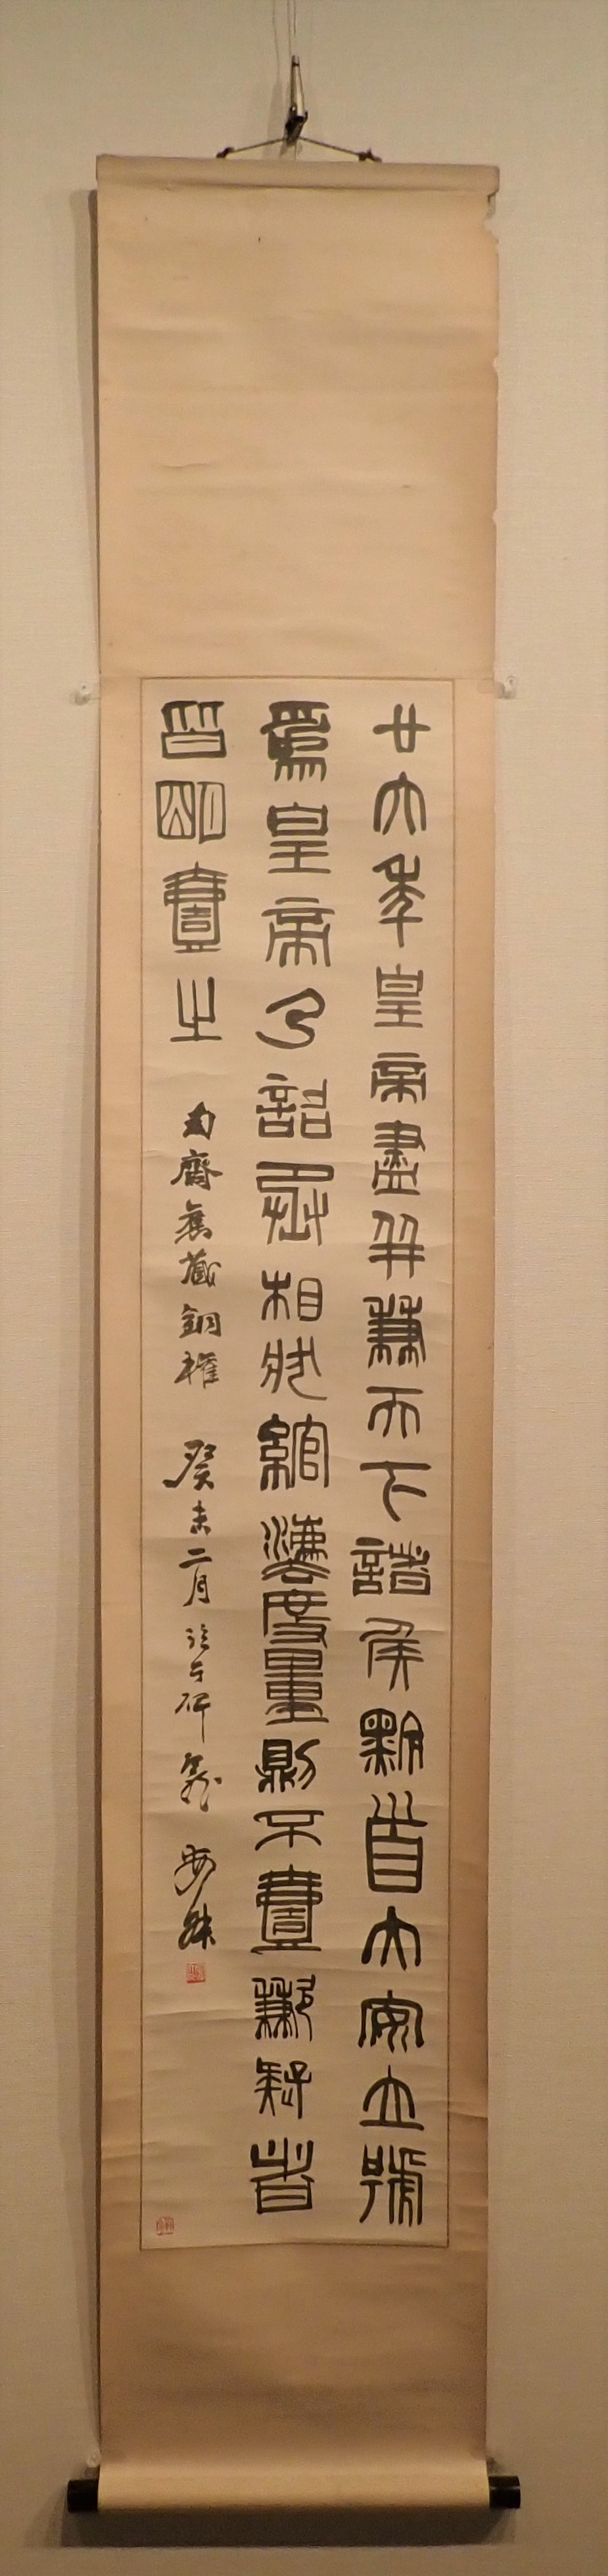 廿六年皇帝盡并兼天下諸侯黔首大安立號
為皇帝乃詔丞相狀綰灋度量則不壹歉疑者
皆明壹之 匋齋舊藏銅權 癸未二月